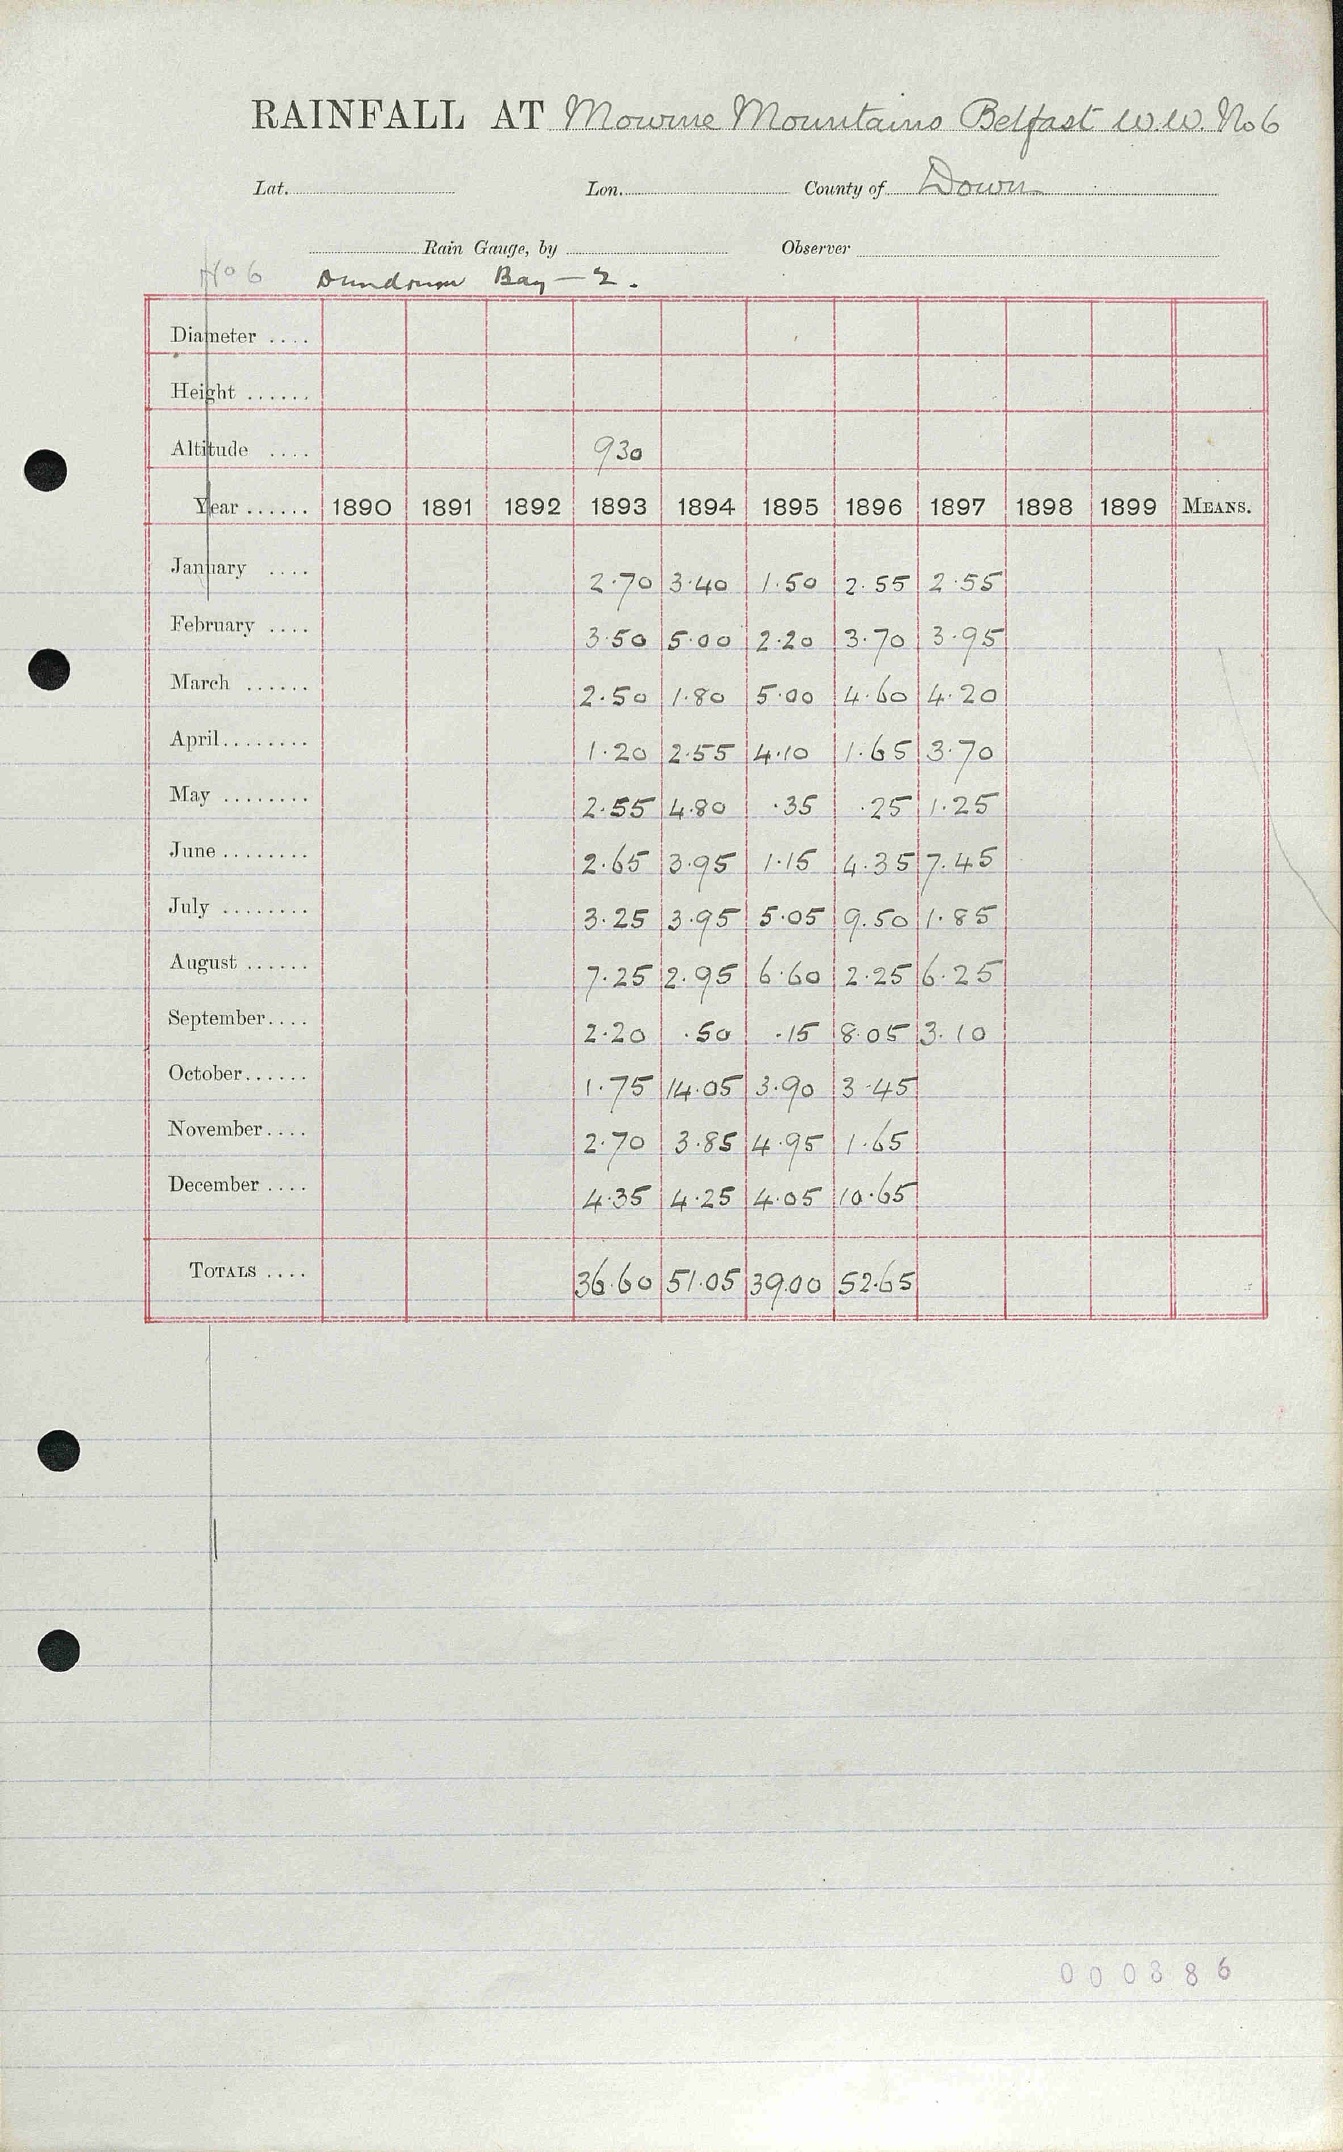 RAINFALL AT Mourne Mountains Belfast W.W. No 6
Lat. Lon. County of Down
Rain Gauge, by Observer
No 6 Dundrum Bay — 2.
Diameter ....
Height ......
Altitude .... 930
Year ...... 1890 1891 1892 1893 1894 1895 1896 1897 1898 1899 MEANS.
January .... 2.70 3.40 1.50 2.55 2.55
February .... 3.50 5.00 2.20 3.70 3.95
March ...... 2.50 1.80 5.00 4.60 4.20
April........ 1.20 2.55 4.10 1.65 3.70
May ........ 2.55 4.80 .35 .25 1.25
June........ 2.65 3.95 1.15 4.35 7.45
July ........ 3.25 3.95 5.05 9.50 1.85
August ...... 7.25 2.95 6.60 2.25 6.25
September.... 2.20 .50 .15 8.05 3.10
October...... 1.75 14.05 3.90 3.45
November.... 2.70 3.85 4.95 1.65
December .... 4.35 4.25 4.05 10.65
TOTALS .... 36.60 51.05 39.00 52.65
000386